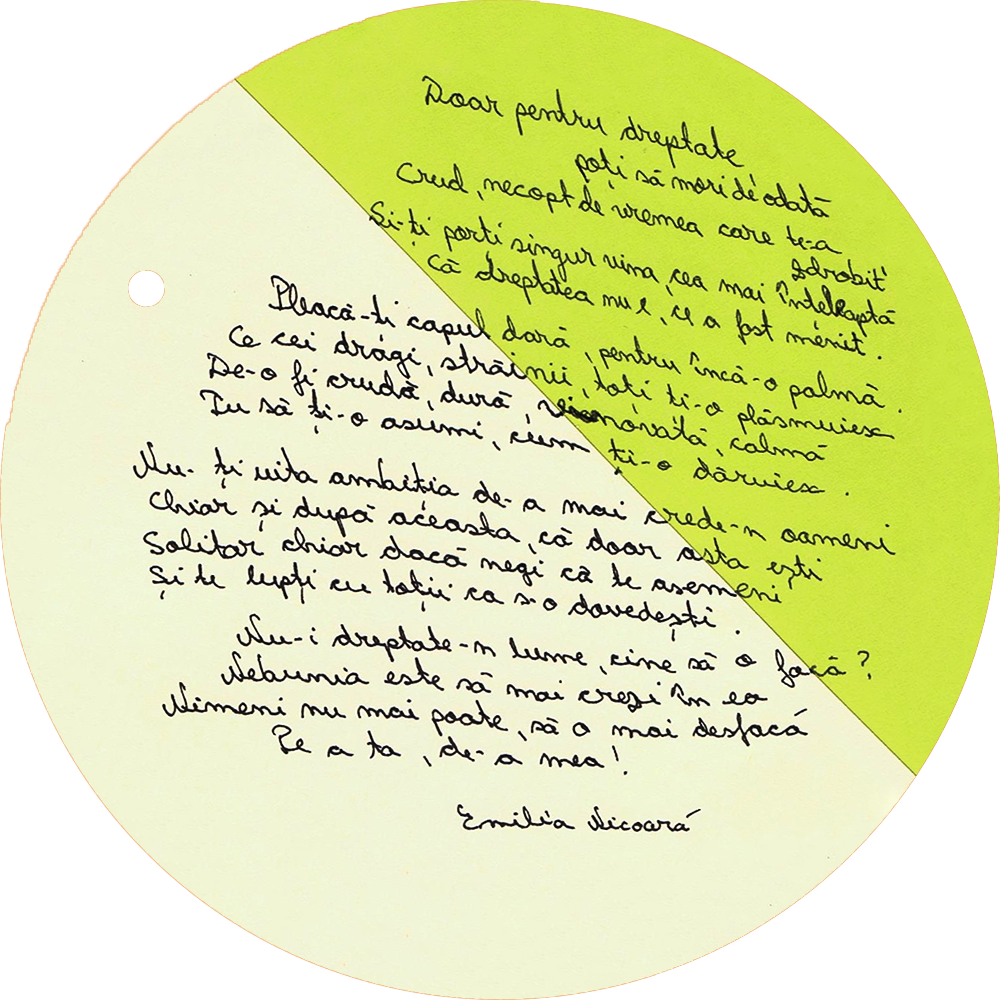 Doar pentru dreptate
poți să mori de odată
Crud, necopt de vremea care te-a
zdrobit
Și-ți porți singur vina, cea mai înțeleaptă
Că dreptatea nu e, ce a fost menit.
Pleacă-ți capul dară, pentru încă-o palmă.
Ce cei dragi, străinii, toți ți-o plăsmuiesc
De-o fi crudă, dură, renovată, calmă
Tu să ți-o asumi, cum ți-o dăruiesc.
Nu-ți uita ambiția de-a mai crede-n oameni
Chiar și după aceasta, că doar asta ești
Solitar chiar dacă negi că te asemeni
Și te lupți cu toții ca s-o dovedești.
Nu-i dreptate-n lume, cine să o facă?
Nebunia este să mai crezi în ea
Nimeni nu mai poate, să o mai desfacă
Pe a ta, de-a mea!
Emilia Nicoară